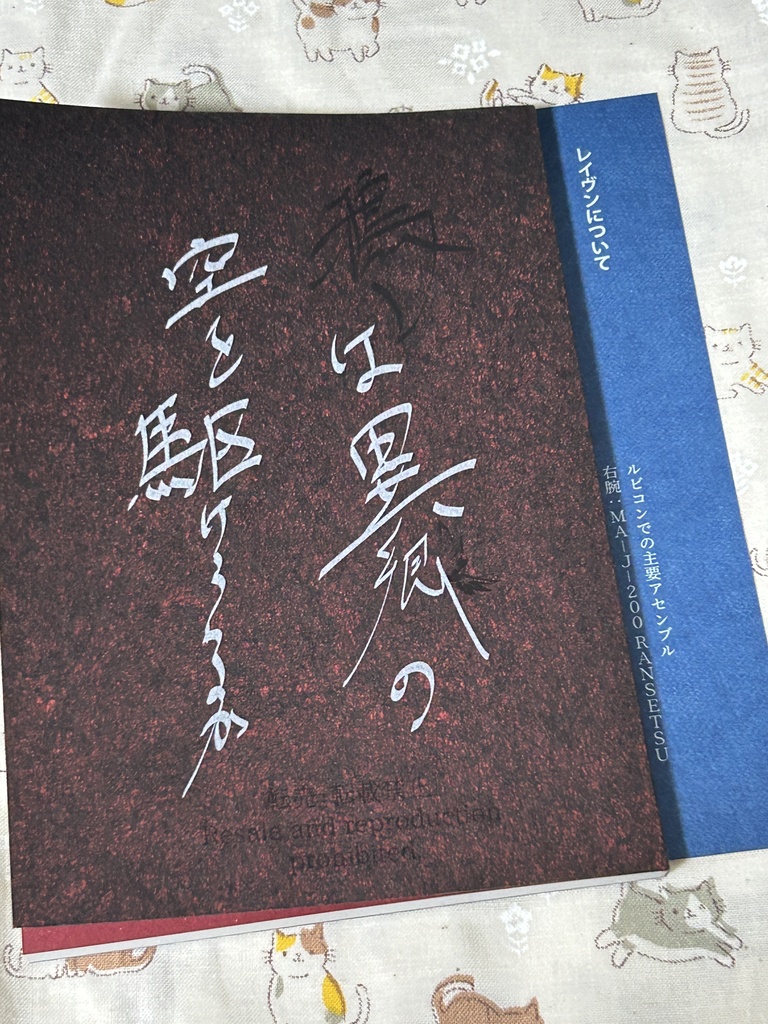 は異郷の
空を駆けうるか
転売・転載禁止
Resale and reproduction
prohibited.
レイヴンについて
ルビコンでの主要アセンブル
右腕：MA-J-200 RANSETSU